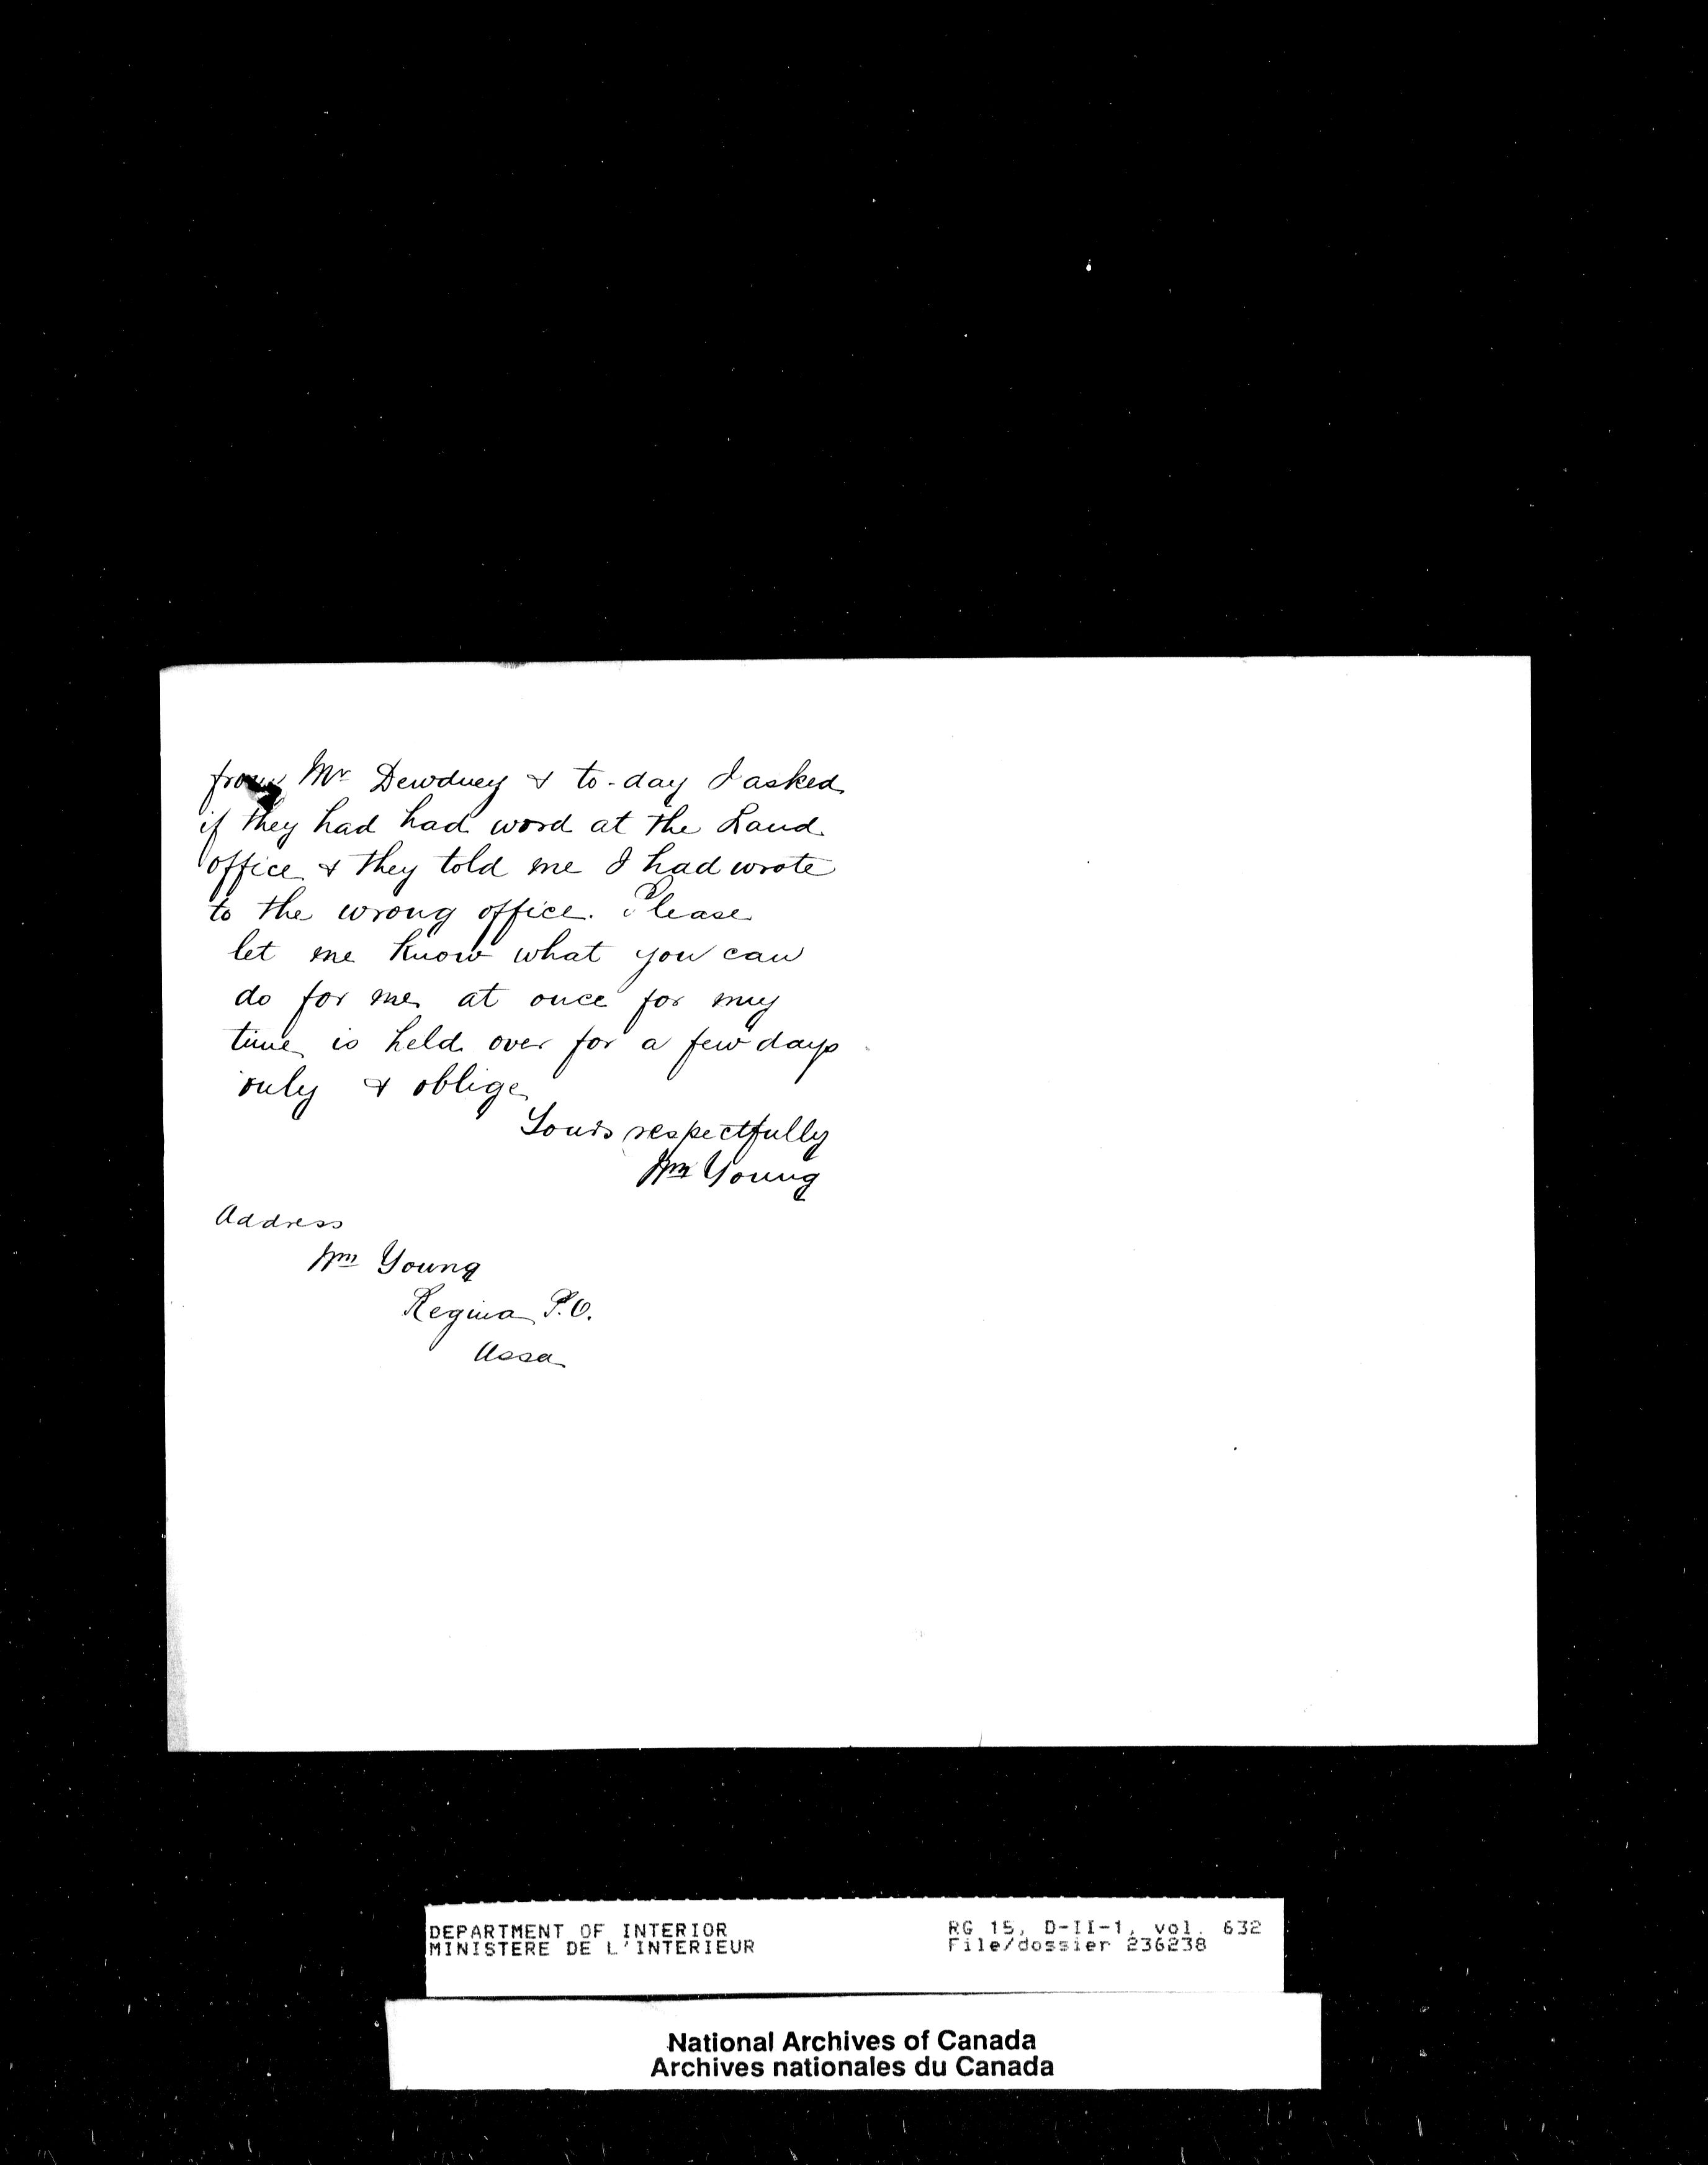 from Mr Dewdney & to-day I asked
if they had had word at the Land
office & they told me I had wrote
to the wrong office. Please
let me know what you can
do for me at once for my
time is held over for a few days
only & oblige
Yours respectfully
Wm Young
Address
Wm Young
Regina P.O.
Assa
DEPARTMENT OF INTERIOR
MINISTERE DE L'INTERIEUR
RG 15, D-II-1, vol. 632
File/dossier 236238
National Archives of Canada
Archives nationales du Canada